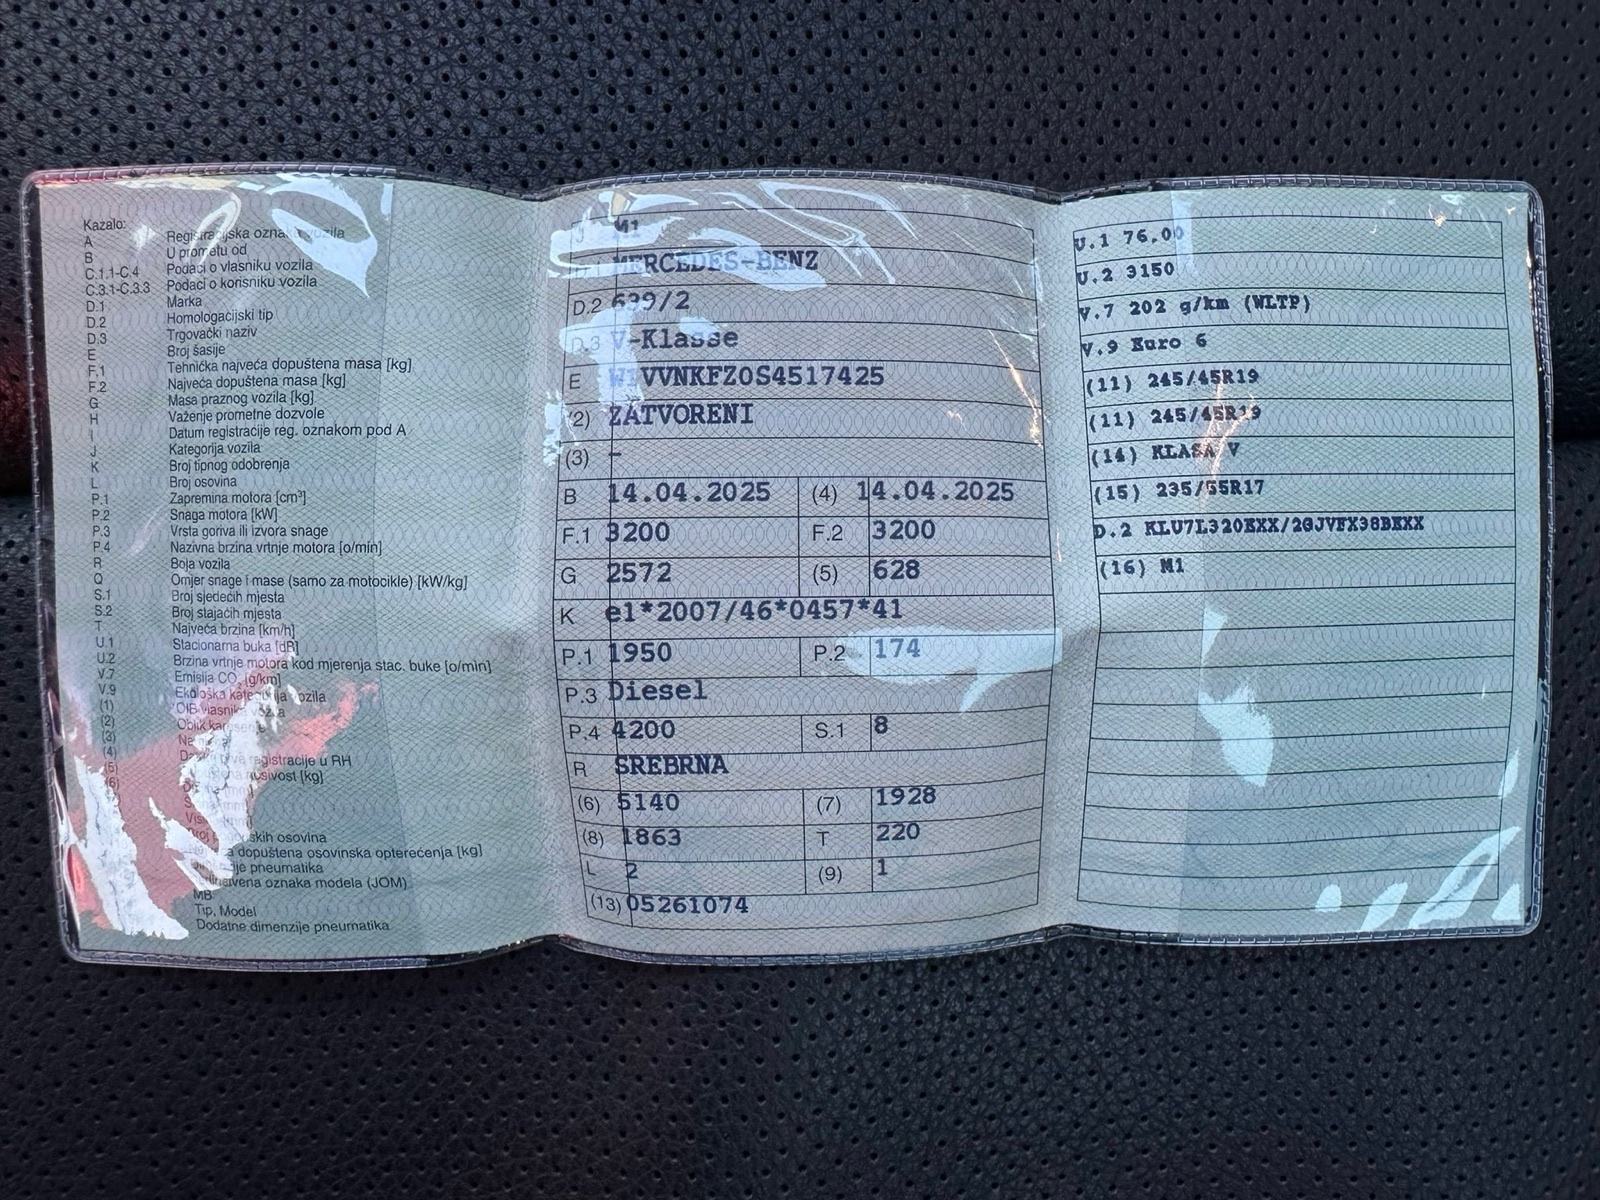 Kazalo:
A Registracijska oznaka vozila
B U prometu od
C.1.1-C.4 Podaci o vlasniku vozila
C.3.1-C.3.3 Podaci o korisniku vozila
D.1 Marka
D.2 Homologacijski tip
D.3 Trgovački naziv
E Broj šasije
F.1 Tehnička najveća dopuštena masa [kg]
F.2 Najveća dopuštena masa [kg]
G Masa praznog vozila [kg]
H Važenje prometne dozvole
I Datum registracije reg. oznakom pod A
J Kategorija vozila
K Broj tipnog odobrenja
L Broj osovina
P.1 Zapremina motora [cm³]
P.2 Snaga motora [kW]
P.3 Vrsta goriva ili izvora snage
P.4 Nazivna brzina vrtnje motora [o/min]
R Boja vozila
Q Omjer snage i mase (samo za motocikle) [kW/kg]
S.1 Broj sjedećih mjesta
S.2 Broj stajaćih mjesta
T Najveća brzina [km/h]
U.1 Stacionarna buka [dB]
U.2 Brzina vrtnje motora kod mjerenja stac. buke [o/min]
V.7 Emisija CO₂ [g/km]
V.9 Ekološka kategorija vozila
(1) OIB vlasnika vozila
(2) Oblik
(3)
(4) registracije u RH
(5) nosivost [kg]
(6)
osovina
dopuštena osovinska opterećenja [kg]
pneumatika
oznaka modela (JOM)
MB
Tip, Model
Dodatne dimenzije pneumatika
J M1
MERCEDES-BENZ
D.2 639/2
D.3 V-Klasse
E W1VVNKFZ0S4517425
(2) ZATVORENI
(3) –
B 14.04.2025 (4) 14.04.2025
F.1 3200 F.2 3200
G 2572 (5) 628
K e1*2007/46*0457*41
P.1 1950 P.2 174
P.3 Diesel
P.4 4200 S.1 8
R SREBRNA
(6) 5140 (7) 1928
(8) 1863 T 220
L 2 (9) 1
(13) 05261074
U.1 76.00
U.2 3150
V.7 202 g/km (WLTP)
V.9 Euro 6
(11) 245/45R19
(11) 245/45R19
(14) KLASA V
(15) 235/55R17
D.2 KLU7L320EXX/2GJVFX38BEXX
(16) M1